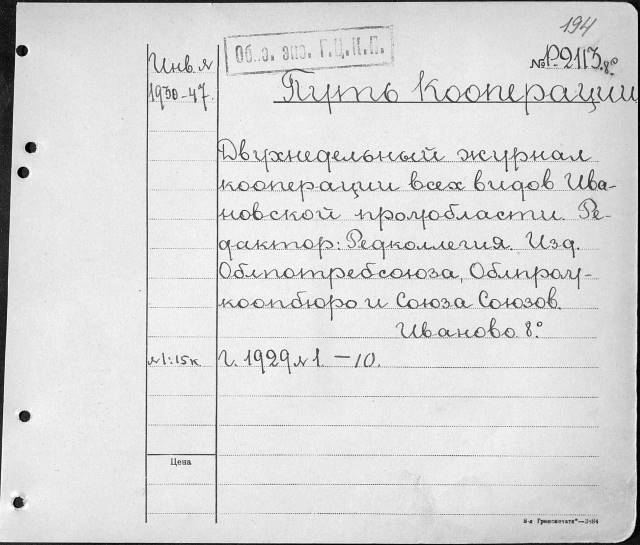 194
Об. э. экз. Г.Ц.К.П.
№ Р2113.8º
Инв. №
1930-47.
Путь Кооперации
Двухнедельный журнал
кооперации всех видов Ива-
новской промобласти. Ре-
дактор: Редколлегия. Изд.
Облпотребсоюза, Облпром-
коопбюро и Союза Союзов.
Иваново. 8º
№1:15к
Г. 1929 №1. –10.
Цена
Гринпечати"—3484